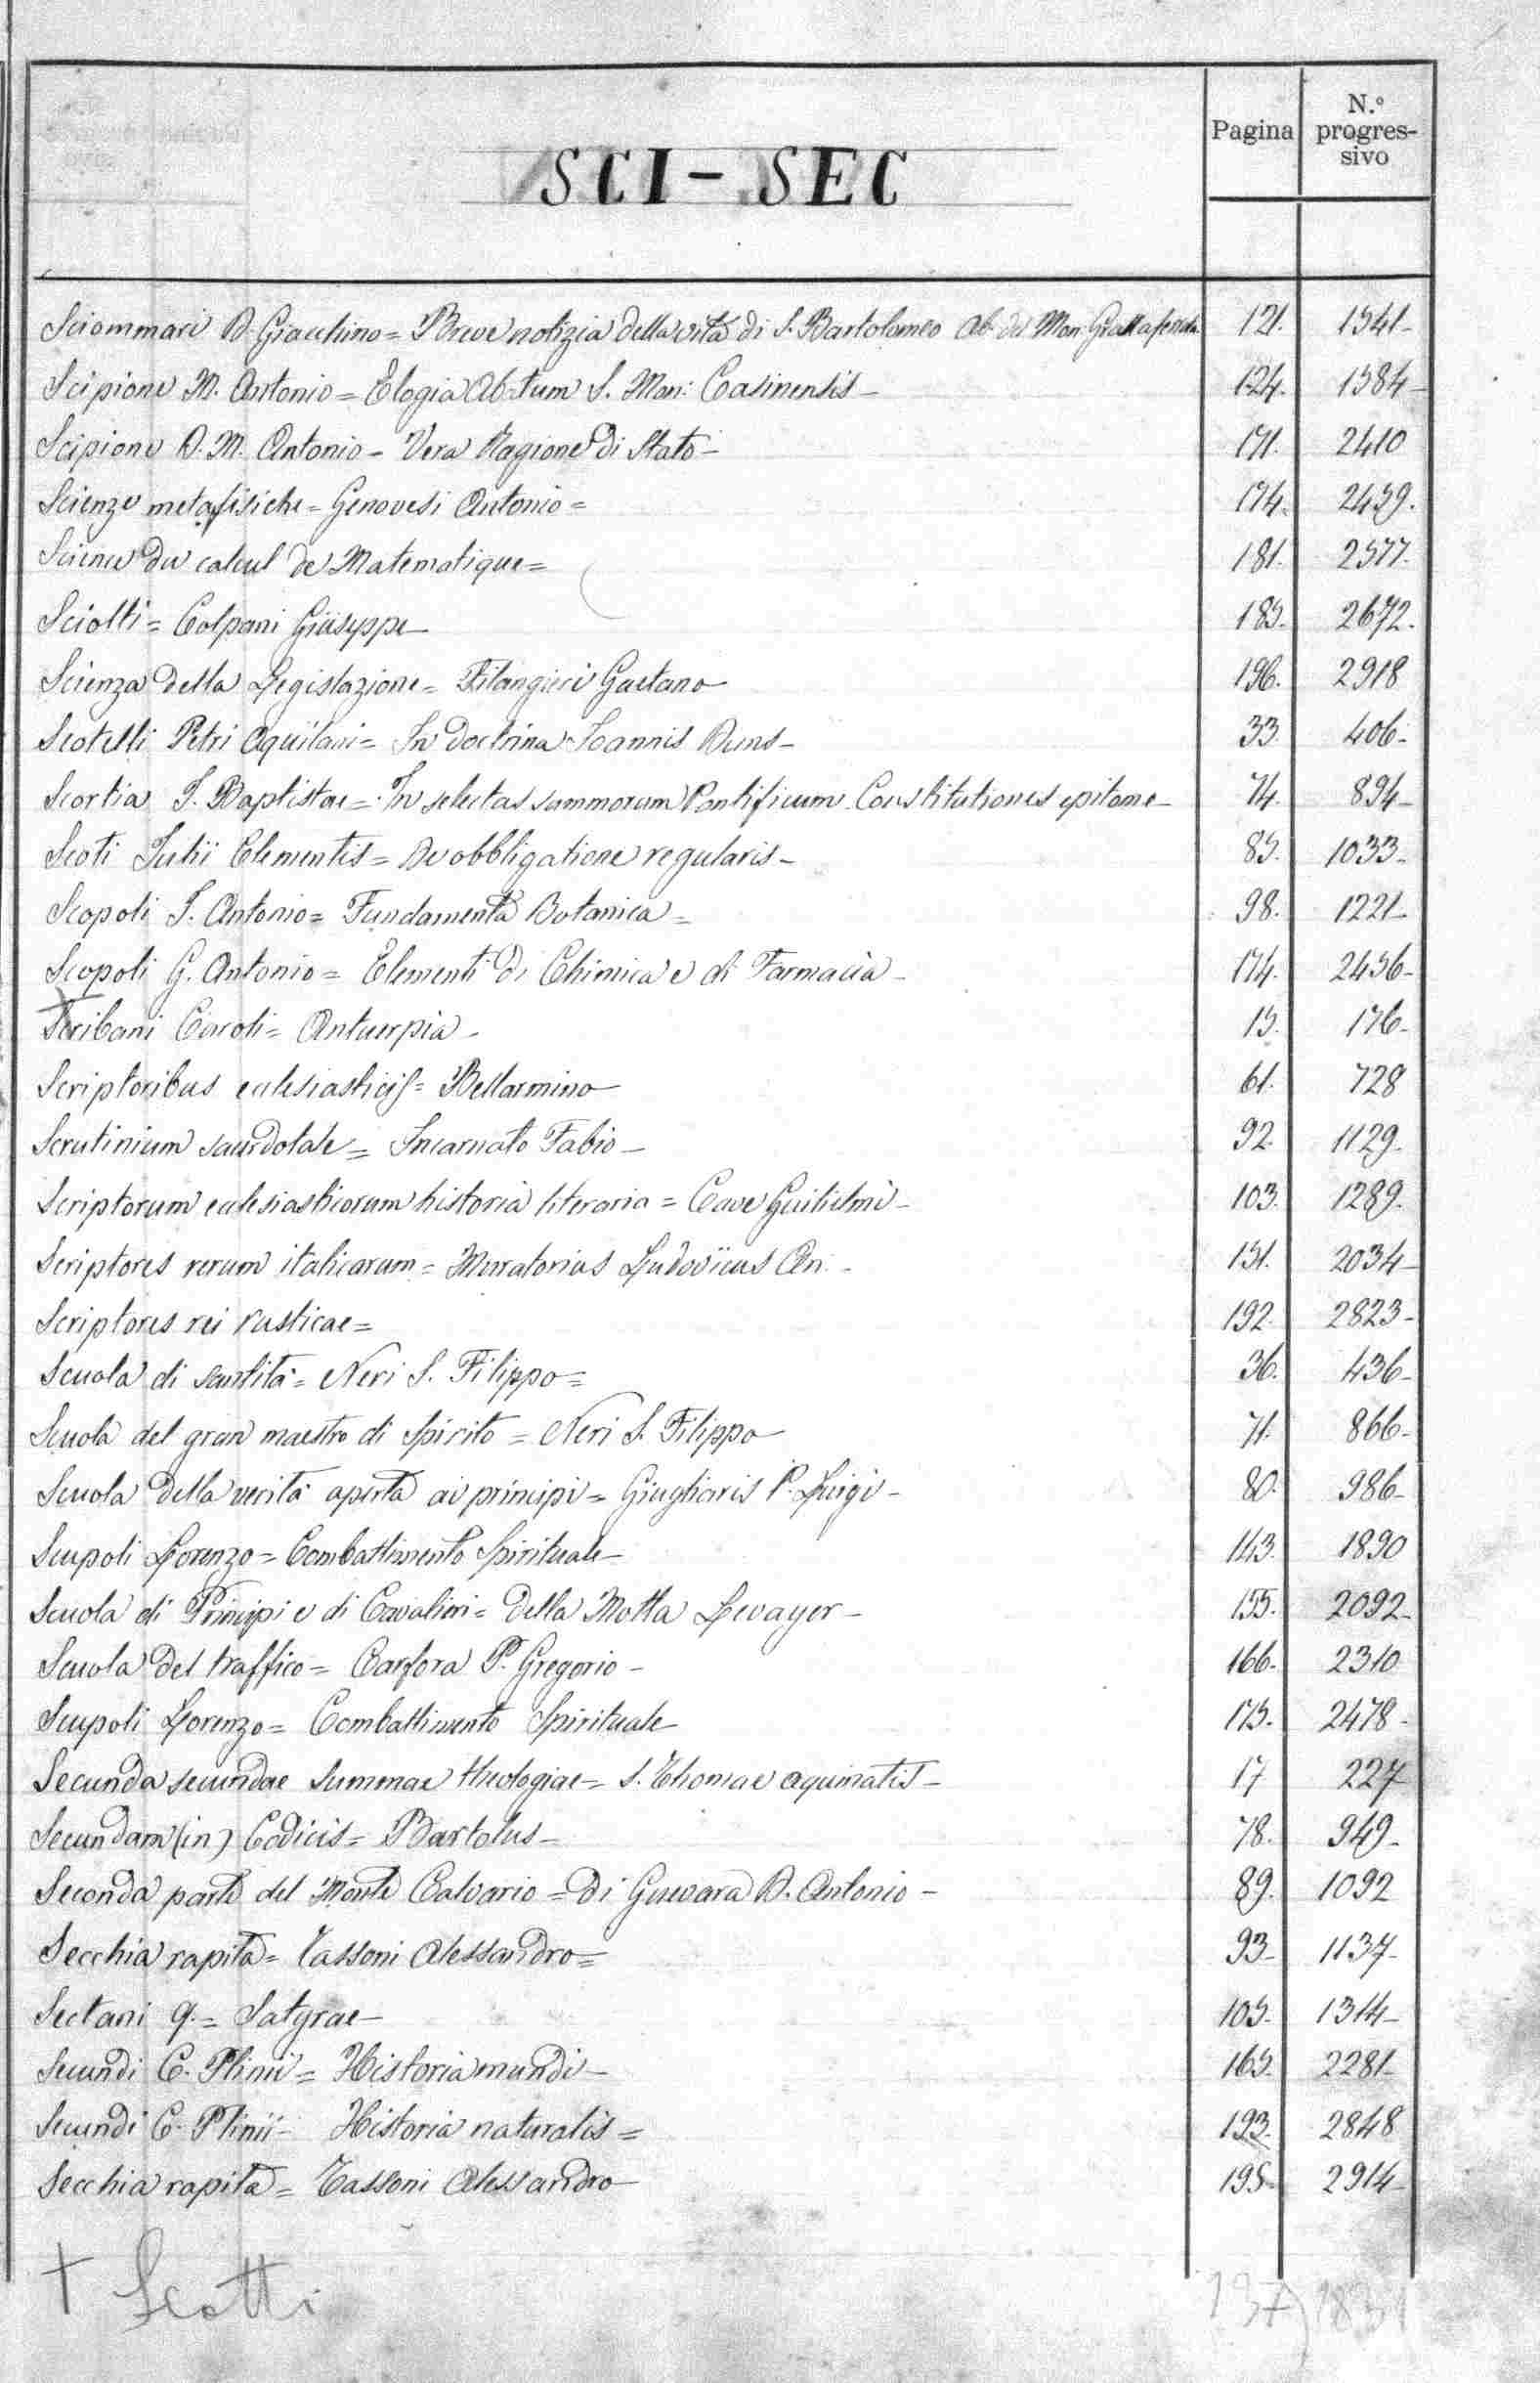 Pagina N.º progres-
sivo
SCI - SEC
Sciommari D. Giacchino = Breve notizia della vita di S. Bartolomeo Ab. del Mon. Grottaferrata 121. 1541-
Scipione M. Antonio = Elogia Abatum S. Mon: Casinensis - 124. 1584-
Scipione D. M. Antonio - Vera Ragione di Stato - 171. 2410
Scienze metafisiche = Genovesi Antonio = 174. 2459.
Science du calcul de Matematique = 181. 2577.
Sciolti = Colpani Giuseppe - 185. 2672.
Scienza della Legislazione = Filangieri Gaetano 196. 2918
Scotelli Petri Aquilani = In doctrina Ioannis Duns - 33 406-
Scortia I. Baptistae = In selectas summorum Pontificum Constitutiones epitome - 74. 894-
Scoti Julii Clementis = De obbligatione regularis - 85. 1033-
Scopoli I. Antonio = Fundamenta Botanica = 98. 1221-
Scopoli G. Antonio = Elementi di Chimica e di Farmacia - 174. 2456-
Scribani Caroli = Antuerpia - 15. 176-
Scriptoribus eclesiasticis = Bellarmino 61. 728
Scrutinium sacerdotale = Incarnato Fabio - 92. 1129.
Scriptorum eclesiasticorum historia literaria = Cave Guilielmi - 103. 1289.
Scriptores rerum italicarum = Muratorius Ludovicus An. - 151. 2034-
Scriptores rei rusticae = 192. 2823-
Scuola di santità = Neri S. Filippo = 36. 436-
Scuola del gran maestro di Spirito = Neri S. Filippo 71. 866-
Scuola della verità aperta ai principi = Giugliaris P. Luigi - 80. 986-
Scupoli Lorenzo = Combattimento Spirituale - 143. 1890
Scuola di Principi e di Cavalieri = della Motta Levayer - 155. 2092-
Scuola del traffico = Carfora P. Gregorio - 166. 2310
Scupoli Lorenzo = Combattimento Spirituale 175. 2478-
Secunda secundae Summae theologiae = S. Thomae aquinatis - 17 227
Secundam (in) Codicis = Bartolus - 78. 949-
Seconda parte del Monte Calvario = di Guevara D. Antonio - 89. 1092
Secchia rapita = Tassoni Alessandro = 93- 1137-
Sectani q. = Satyrae - 105- 1314-
Secundi C. Plinii = Historia mundi - 165- 2281-
Secundi C. Plinii - Historia naturalis = 193. 2848
Secchia rapita = Tassoni Alessandro 195- 2914-
+ Scotti 137) 1831